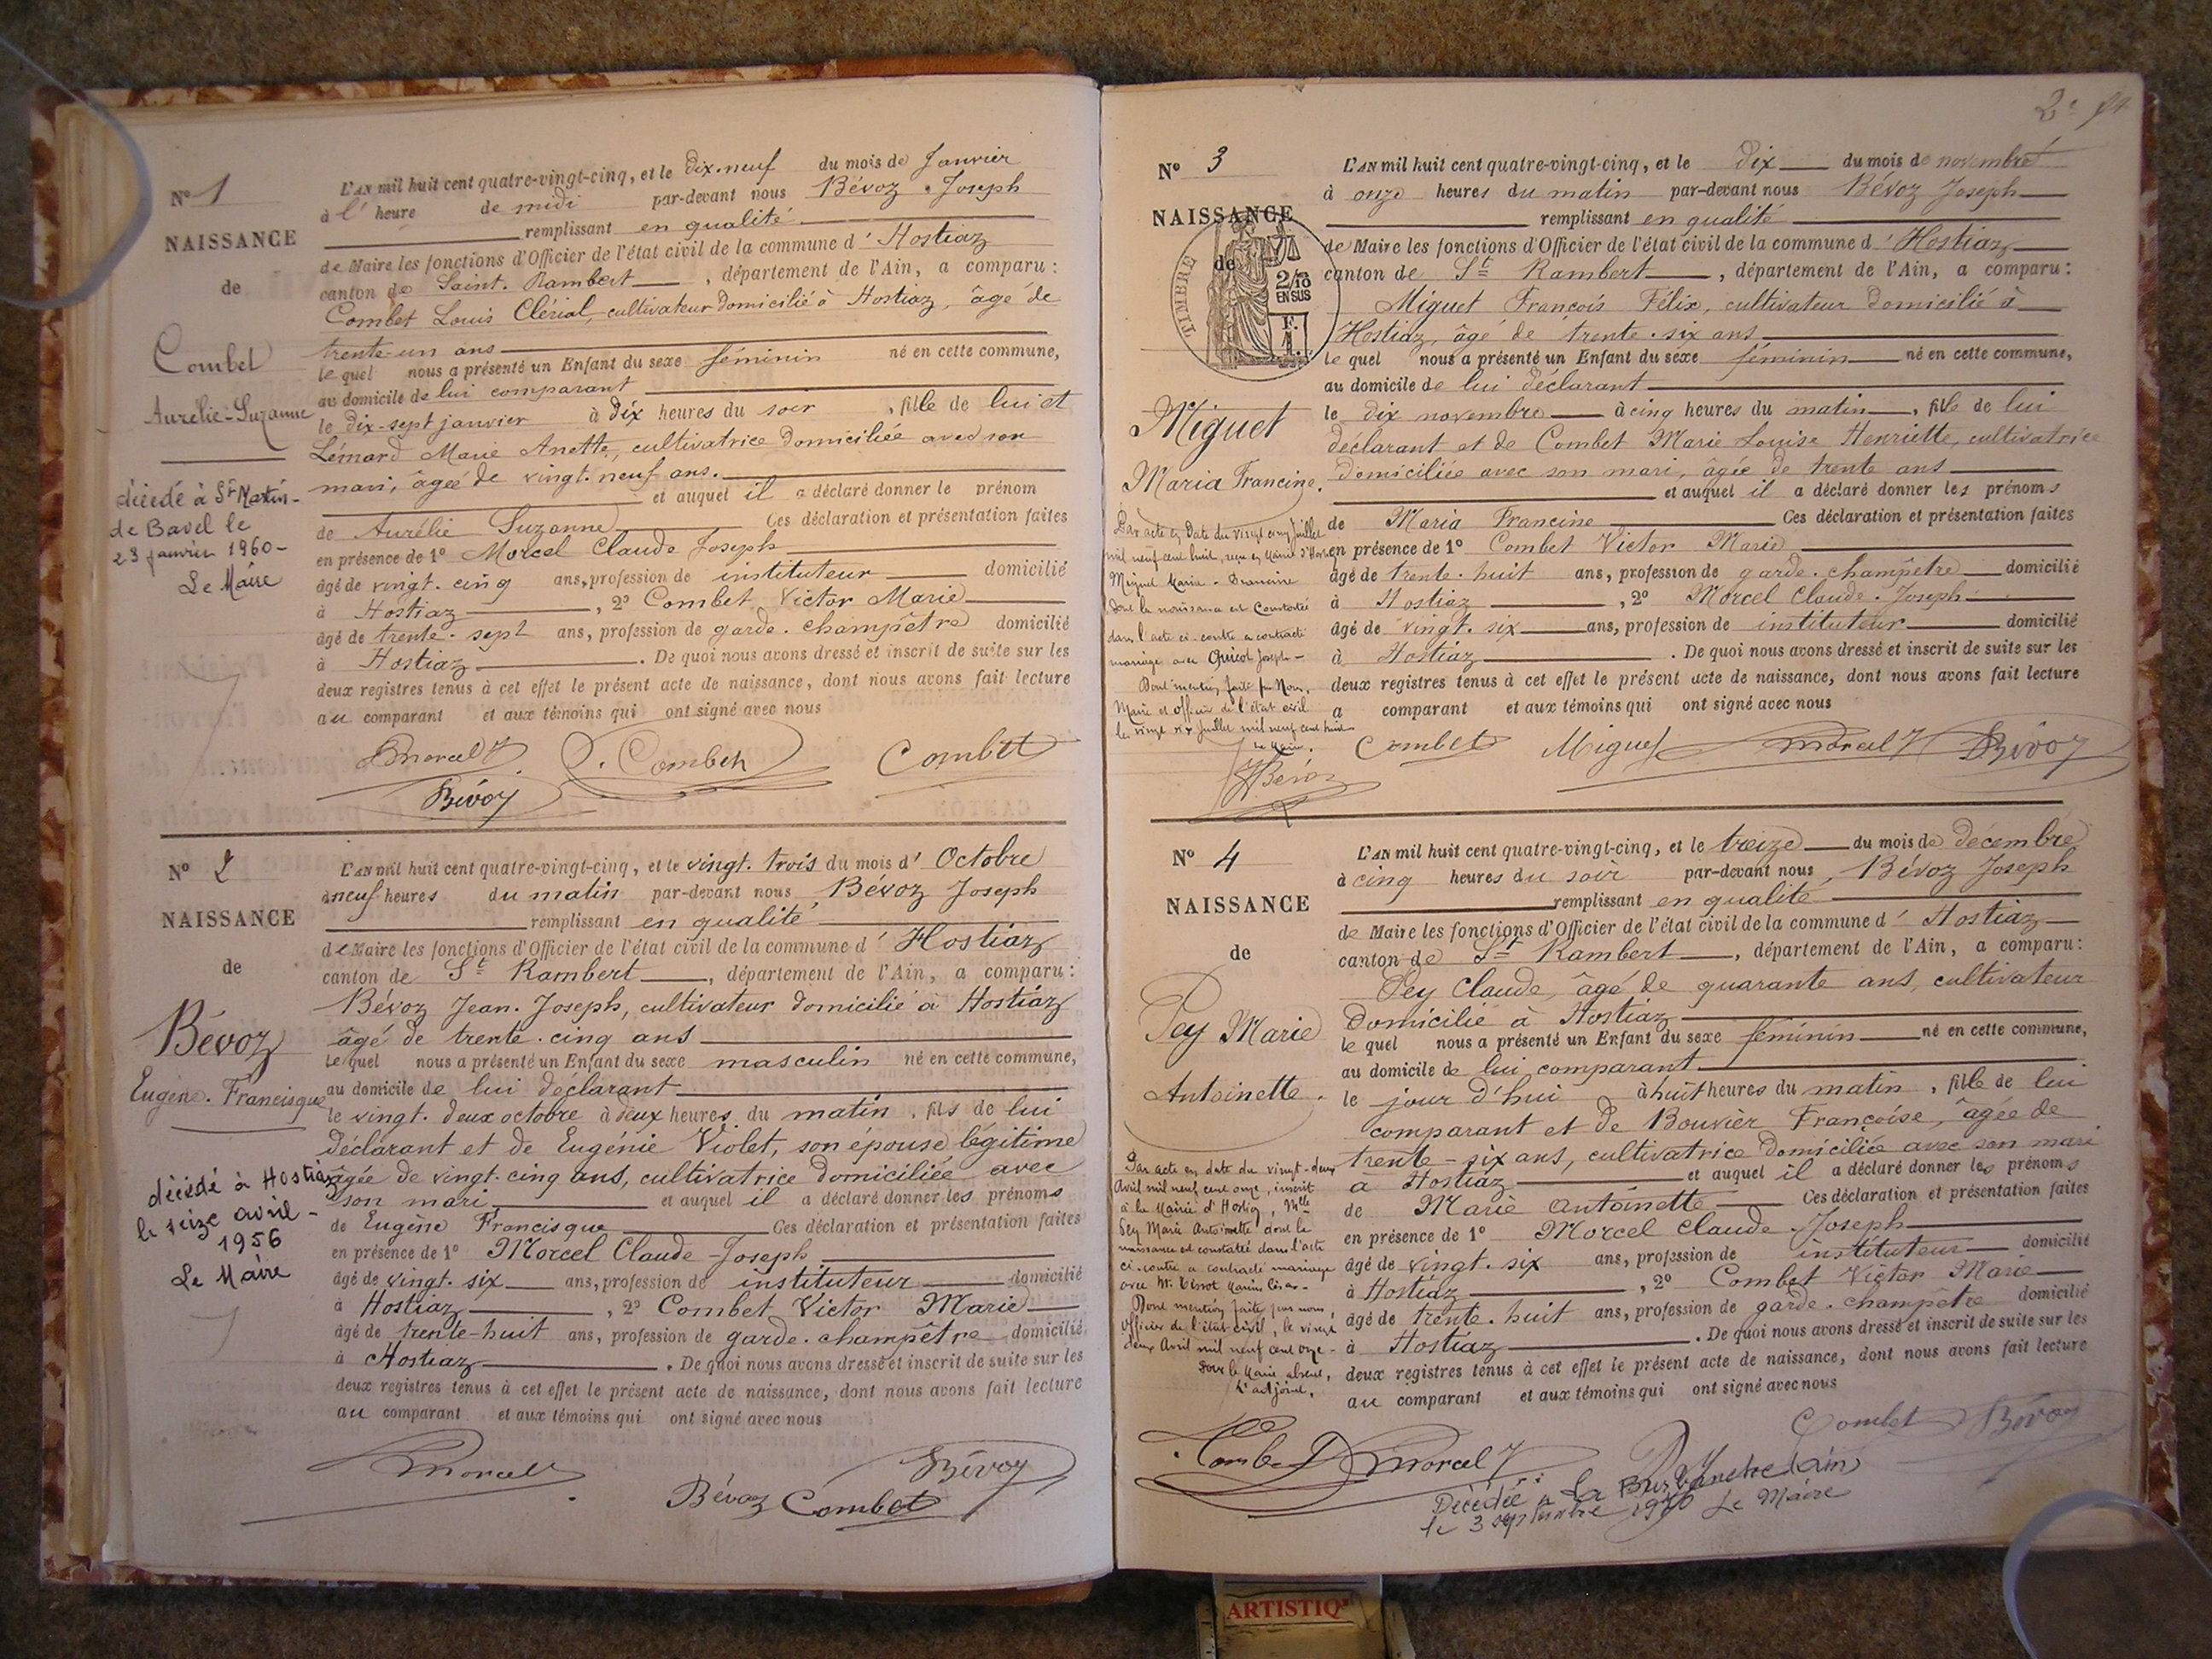 Nº 1
NAISSANCE
de
Combet
Aurélie-Suzanne
décédé à St Martin-
de Bavel le
23 janvier 1960-
Le Maire
L'AN mil huit cent quatre-vingt-cinq, et le dix-neuf du mois de Janvier
à l' heure de midi par-devant nous Bévoz Joseph
remplissant en qualité
de Maire les fonctions d'Officier de l'état civil de la commune d' Hostiaz
canton de Saint-Rambert, département de l'Ain, a comparu:
Combet Louis Clérial, cultivateur domicilié à Hostiaz, âgé de
trente-un ans
le quel nous a présenté un Enfant du sexe féminin né en cette commune,
au domicile de lui comparant
le dix-sept janvier à dix heures du soir, fille de lui et
Lémard Marie Anette, cultivatrice domiciliée avec son
mari, âgée de vingt-neuf ans.
et auquel il a déclaré donner le prénom
de Aurélie Suzanne Ces déclaration et présentation faites
en présence de 1º Morcel Claude Joseph
âgé de vingt-cinq ans, profession de instituteur domicilié
à Hostiaz, 2º Combet Victor Marie
âgé de trente-sept ans, profession de garde-champêtre domicilié
à Hostiaz. De quoi nous avons dressé et inscrit de suite sur les
deux registres tenus à cet effet le présent acte de naissance, dont nous avons fait lecture
au comparant et aux témoins qui ont signé avec nous
Morcel Combet Combet
Bévoz
Nº 2
NAISSANCE
de
Bévoz
Eugène-Francisque
décédé à Hostiaz
le seize avril-
1956
Le Maire
L'AN mil huit cent quatre-vingt-cinq, et le vingt-trois du mois d' Octobre
à neuf heures du matin par-devant nous Bévoz Joseph
remplissant en qualité
de Maire les fonctions d'Officier de l'état civil de la commune d' Hostiaz
canton de St Rambert, département de l'Ain, a comparu:
Bévoz Jean-Joseph, cultivateur domicilié à Hostiaz
âgé de trente-cinq ans
le quel nous a présenté un Enfant du sexe masculin né en cette commune,
au domicile de lui déclarant
le vingt-deux octobre à deux heures du matin, fils de lui
déclarant et de Eugénie Violet, son épouse légitime
âgée de vingt-cinq ans, cultivatrice domiciliée avec
son mari, et auquel il a déclaré donner les prénoms
de Eugène Francisque Ces déclaration et présentation faites
en présence de 1º Morcel Claude-Joseph
âgé de vingt-six ans, profession de instituteur domicilié
à Hostiaz, 2º Combet Victor Marie
âgé de trente-huit ans, profession de garde-champêtre domicilié
à Hostiaz. De quoi nous avons dressé et inscrit de suite sur les
deux registres tenus à cet effet le présent acte de naissance, dont nous avons fait lecture
au comparant et aux témoins qui ont signé avec nous
Morcel Bévoz Combet Bévoz
2e
Nº 3
NAISSANCE
de
TIMBRE
2/10
EN SUS
F.
1.
Miguet
Maria Francine.
Par acte en date du vingt cinq Juillet
mil neuf cent huit, reçu en Mairie d'Hostiaz
Miguet Maria-Francine
dont la naissance est constatée
dans l'acte ci-contre a contracté
mariage avec Joseph-
Dont mention faite par Nous,
Maire et officier de l'état civil
le vingt six Juillet mil neuf cent huit
Le Maire.
Bévoz
L'AN mil huit cent quatre-vingt-cinq, et le dix du mois de novembre
à onze heures du matin par-devant nous Bévoz Joseph
remplissant en qualité
de Maire les fonctions d'Officier de l'état civil de la commune d' Hostiaz
canton de St Rambert, département de l'Ain, a comparu:
Miguet François Félix, cultivateur domicilié à
Hostiaz, âgé de trente-six ans
le quel nous a présenté un Enfant du sexe féminin né en cette commune,
au domicile de lui déclarant
le dix novembre à cinq heures du matin, fille de lui
déclarant et de Combet Marie Louise Henriette, cultivatrice
domiciliée avec son mari, âgée de trente ans
et auquel il a déclaré donner les prénoms
de Maria Francine Ces déclaration et présentation faites
en présence de 1º Combet Victor Marie
âgé de trente-huit ans, profession de garde-champêtre domicilié
à Hostiaz, 2º Morcel Claude-Joseph
âgé de vingt-six ans, profession de instituteur domicilié
à Hostiaz. De quoi nous avons dressé et inscrit de suite sur les
deux registres tenus à cet effet le présent acte de naissance, dont nous avons fait lecture
a comparant et aux témoins qui ont signé avec nous
Combet Miguet Morcel Bévoz
Nº 4
NAISSANCE
de
Pey Marie
Antoinette.
Par acte en date du vingt-deux
Avril mil neuf cent onze, inscrit
à la Mairie d'Hostiaz, Mlle
Pey Marie Antoinette dont la
naissance est constatée dans l'acte
ci-contre a contracté mariage
avec Mr.
Dont mention faite par nous,
Officier de l'état civil, le vingt
deux Avril mil neuf cent onze-
Pour le Maire absent,
L'adjoint,
L'AN mil huit cent quatre-vingt-cinq, et le treize du mois de décembre
à cinq heures du soir par-devant nous, Bévoz Joseph
remplissant en qualité
de Maire les fonctions d'Officier de l'état civil de la commune d' Hostiaz
canton de St Rambert, département de l'Ain, a comparu:
Pey Claude, âgé de quarante ans, cultivateur
domicilié à Hostiaz
le quel nous a présenté un Enfant du sexe féminin né en cette commune,
au domicile de lui comparant
le jour d'hui à huit heures du matin, fille de lui
comparant et de Bouvier Françoise, âgée de
trente-six ans, cultivatrice domiciliée avec son mari
à Hostiaz et auquel il a déclaré donner les prénoms
de Marie Antoinette Ces déclaration et présentation faites
en présence de 1º Morcel Claude-Joseph
âgé de vingt-six ans, profession de instituteur domicilié
à Hostiaz, 2º Combet Victor Marie
âgé de trente-huit ans, profession de garde-champêtre domicilié
à Hostiaz. De quoi nous avons dressé et inscrit de suite sur les
deux registres tenus à cet effet le présent acte de naissance, dont nous avons fait lecture
au comparant et aux témoins qui ont signé avec nous
Combet Bévoz
Combet Morcel
Décédée à La Burbanche (Ain)
le 3 septembre Le Maire
ARTISTIQ